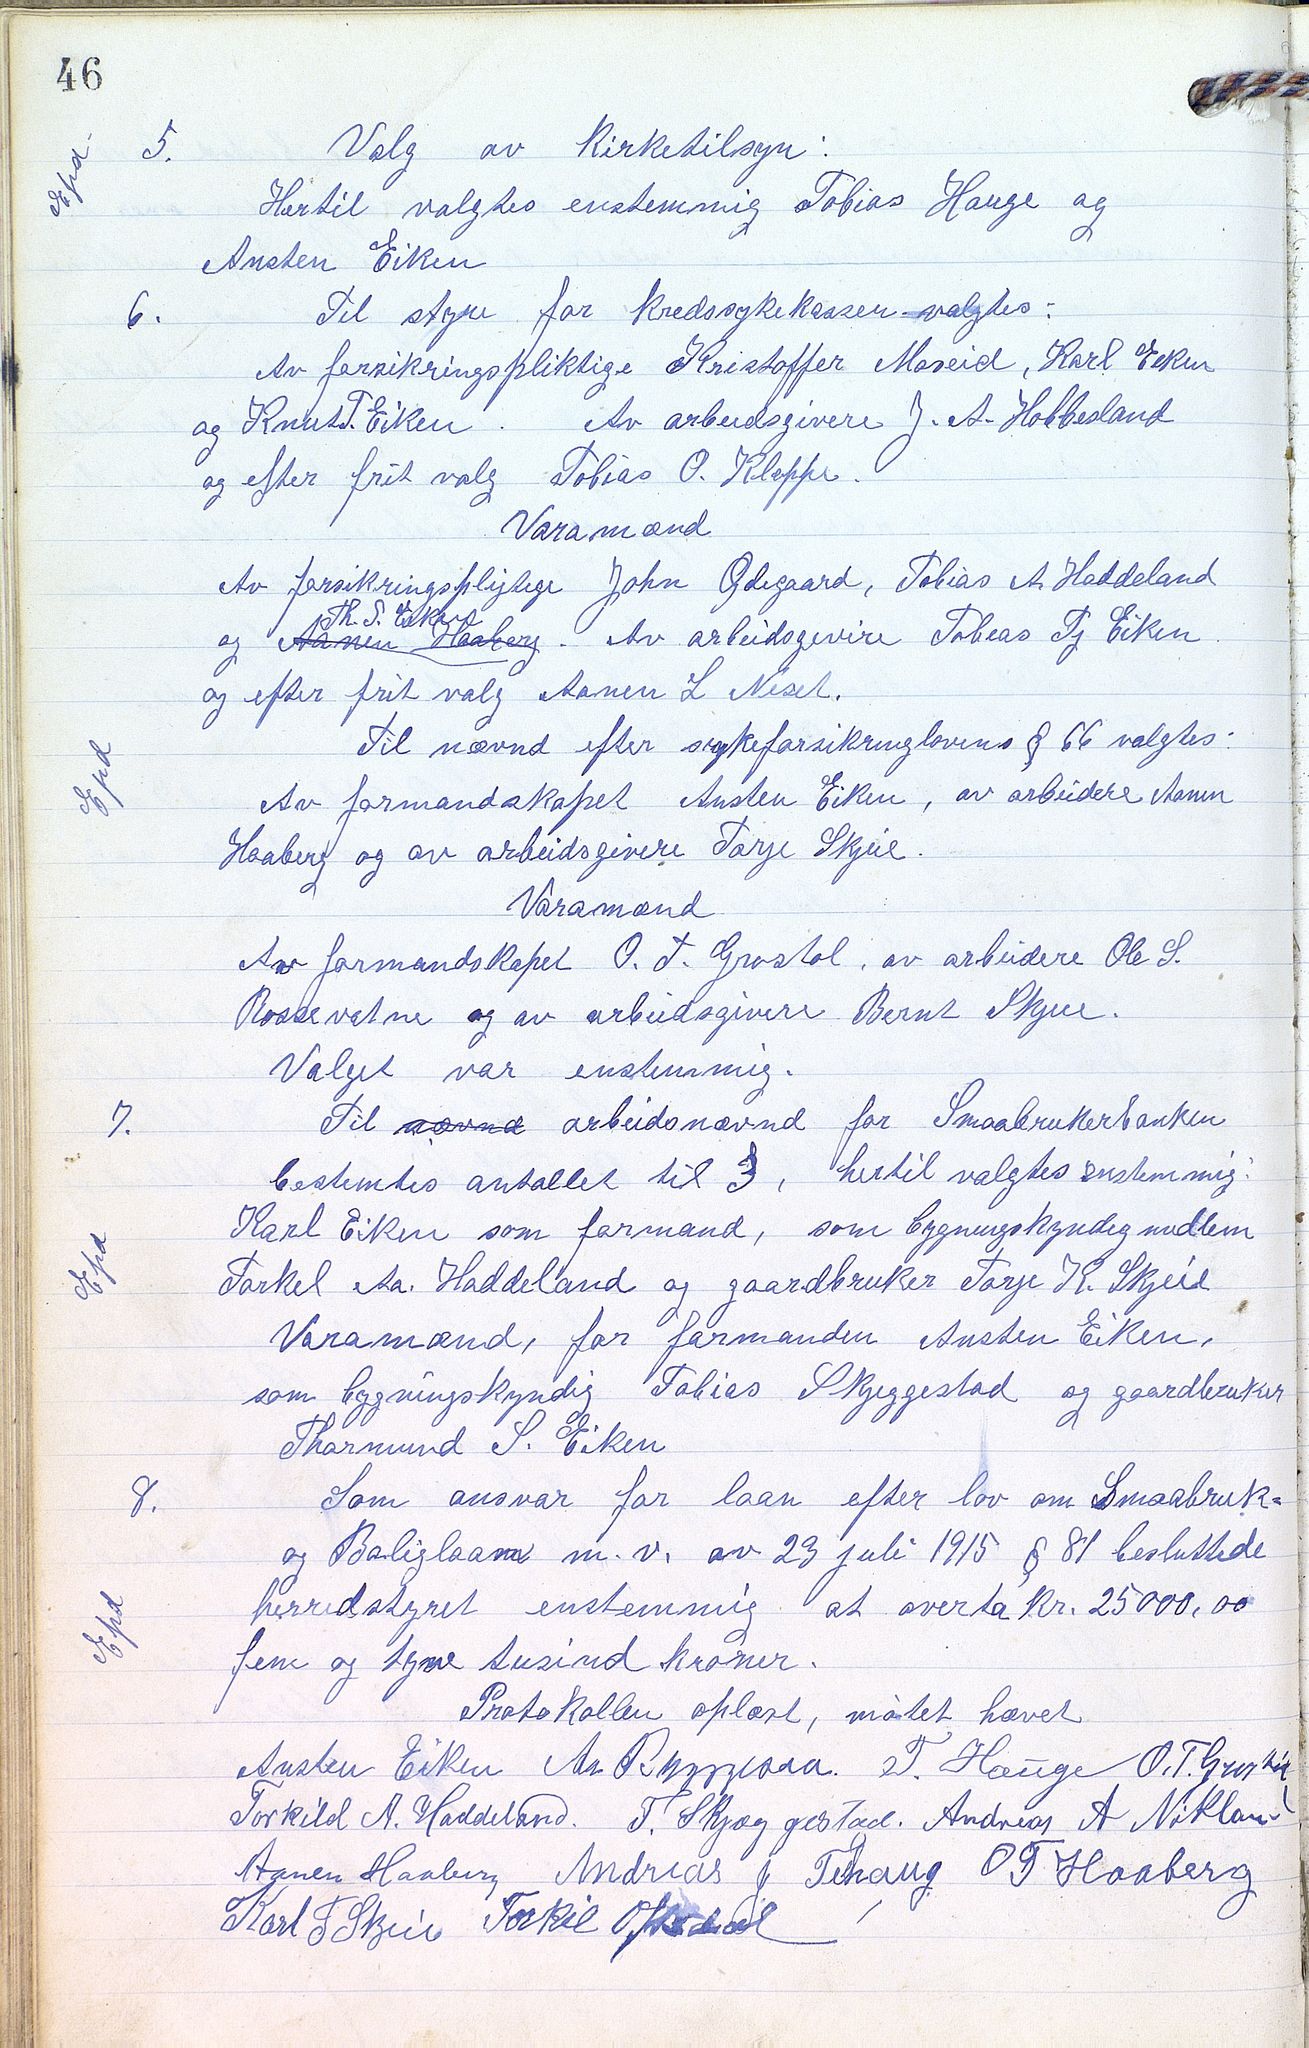 46
Epd. 5. Valg av Kirketilsyn:
Hertil valgtes enstemmig Tobias Hauge og
Ansten Eiken
6. Til styre for kredssykekassen valgtes:
Av forsikringspliktige Kristoffer Moseid, Karl Eiken
og Knut T. Eiken. Av arbeidsgivere J. A. Hobbesland
og efter frit valg Tobias O. Kleppe.
Varamænd
Av forsikringspligtige John Ødegaard, Tobias A. Haddeland
Th. S. Eiken
og Aanen Haaberg. Av arbeidsgevire Tobeas Tj Eiken
og efter frit valg Aanen L Neset.
Epd Til nævnd efter sykeforsikringlovens § 66 valgtes:
Av formandskapet Ansten Eiken, av arbeidere Aanen
Haaberg og av arbeidsgivere Torje Skjeie.
Varamænd
Av formandskapet O. T. Grostøl, av arbeidere Ole S.
Rossevatne og av arbeidsgivere Bernt Skjeie.
Valget var enstemmig.
7. Til nævnd arbeidsnævnd for Smaabrukerbanken
bestemtes antallet til 3, hertil valgtes enstemmig:
Epd Karl Eiken som formand, som bygningskyndig medlem
Torkel Aa. Haddeland og gaardbruker Torje K. Skjeie
Varamænd, for formanden Ansten Eiken,
som bygningskyndig Tobias Skjeggestad og gaardbruker
Thormund S. Eiken
8. Som ansvar for laan efter lov om Smaabruk-
og Boliglaan m. v. av 23 juli 1915 § 81 besluttede
Epd herredstyret enstemmig at overta kr. 25000,00
fem og tyve tusind kroner.
Protokollen oplæst, møtet hævet
Ansten Eiken T. Hauge O. T. Grostøl
Torkild A. Haddeland. T. Skjæggestad. Andreas A Nøkland
Aanen Haaberg Andreas J Tehaug O T Haaberg
Karl T Skjeie Torkil